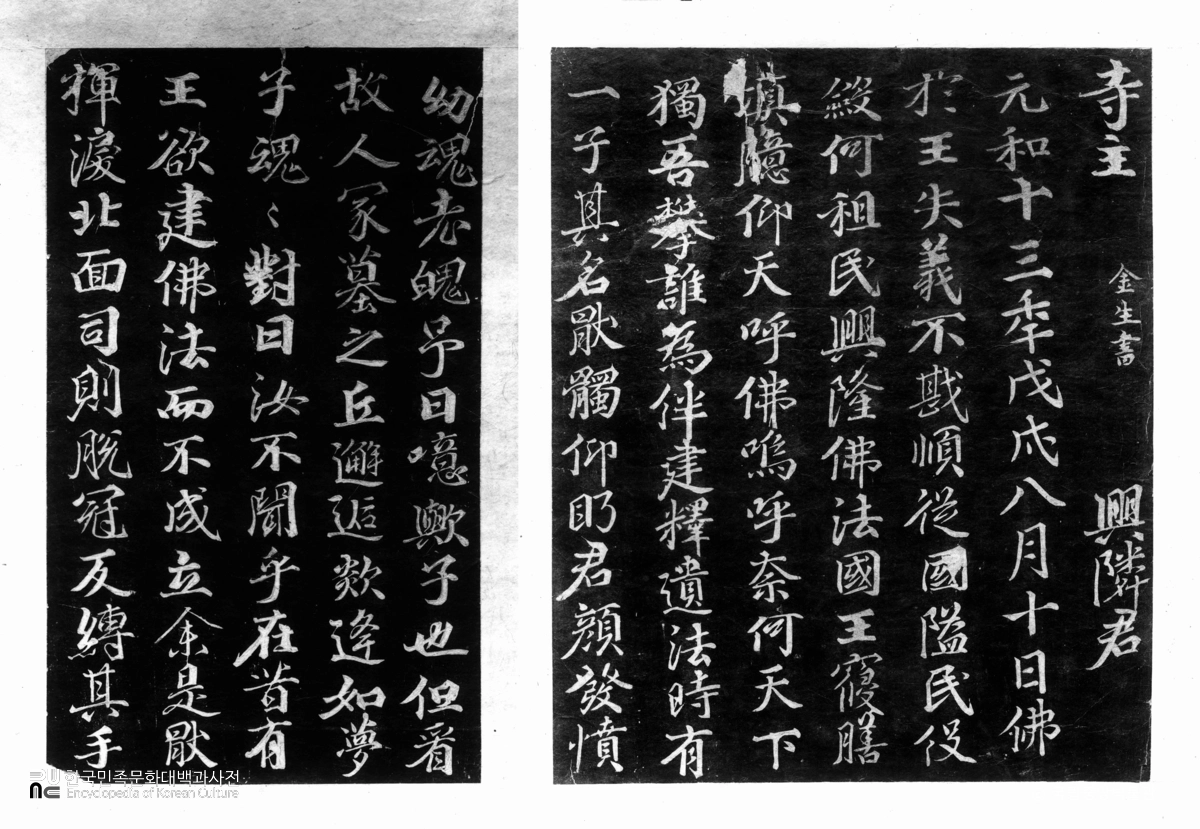 寺主 金生書 興隣君
元和十三秊戊戌八月十日佛
於王失義不戡順從國隘民役
緞何租民興隆佛法國王寢膳
塡臆仰天呼佛嗚呼奈何天下
獨吾攀誰為伴建釋遺法時有
一子其名猒髑仰眄君顔發憤
幼魂老魄吊曰噫歟子也但看
故人冢墓之丘邂逅欻逢如夢
子魂〻對曰汝不聞乎在昔有
王欲建佛法而不成立余是猒
揮淚北面司則脫冠反縛其手
한국민족문화대백과사전
Encyclopedia of Korean Culture